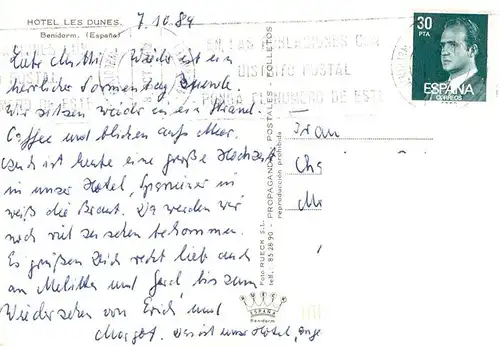 HOTEL LES DUNES.
Benidorm. (España)
7.10.89
EN LAS POBLACIONES CON
DISTRITO POSTAL
PONGA EL NUMERO DE ESTE
30
PTA
ESPAÑA
CORREOS
Liebe Wieder ist ein
herrlicher Sonnentag
Wir sitzen wieder in ein Strand.
Caffee und blicken aufs Meer.
auch ist heute eine große Hochzeit
in unser Hotel, Spanier in
weiß die Braut. Da werden wir
noch viel zu sehen bekommen.
Es grüßen Dich recht lieb auch
an Melitta und Gerd bis zum
Wiedersehen von Erich und
Margot. Das ist unser Hotel,
Frau
Ch
M
Foto RUECK S.L.
telf.: 85 28 90 - PROPAGANDA - POSTALES - FOLLETOS
reproducción prohibida
ESPAÑA
Benidorm